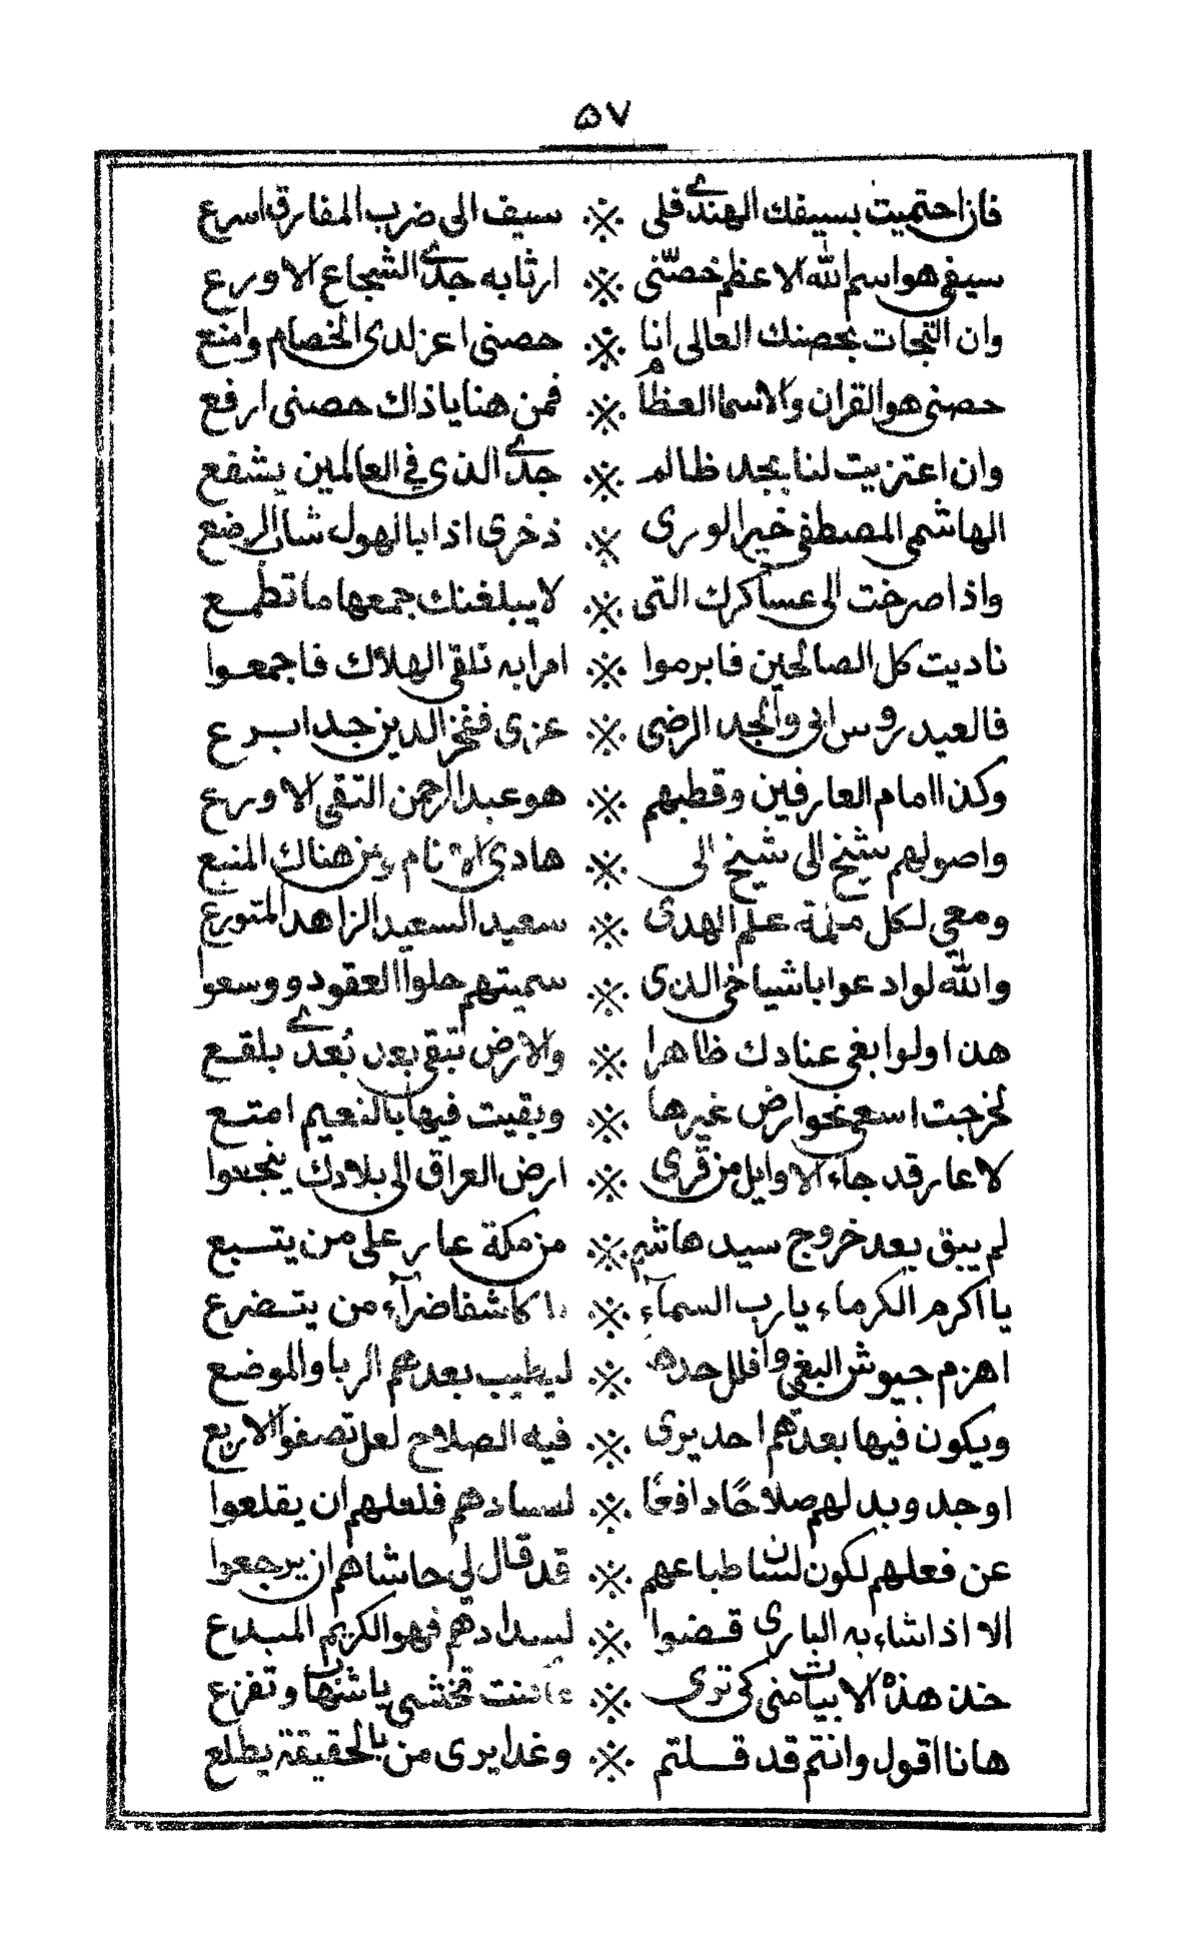 ٥٧
فان احتميت بسيفك الهندى فلى ※ سيف الى ضرب المفارق اسرع
سيفى هو اسم الله الاعظم خصّنى ※ ارثا به جدى الشجاع الاورع
وان التجات بحصنك العالى انا ※ حصنى اعز لدى الخصام وامنع
حصنى هو القران والاسما العظام ※ فمن هنا يا ذاك حصنى ارفع
وان اعتزيت لنا بجد ظالم ※ جدى الذى في العالمين يشفع
الهاشمى المصطفى خير الورى ※ ذخرى اذا بالهول شاب الرضع
واذا صرخت الى عساكرك التى ※ لا يبلغنك جمعها ما تطمع
ناديت كل الصالحين فابرموا ※ امرا به تلقى الهلاك فاجمعوا
فالعيدروس ابى والجد الرضى ※ عزى ففخر الدين جدا برع
وكذا امام العارفين وقطبهم ※ هو عبد الرحمن التقى الاورع
واصولهم شيخ الى شيخ الى ※ هادى الانام ومن هناك المنبع
ومعي لكل ملمة علم الهدى ※ سعيد السعيد الزاهد المتورع
والله لو ادعوا باشياخى الذى ※ سميتهم حلوا العقود ووسعوا
هذا ولو ابغى عنادك ظاهرا ※ والارض تبقى بعد بُعدى بلقع
لخرجت اسعى نحو ارض غيرها ※ وبقيت فيها بالنعيم امتع
لا عار قد جاء الاوايل من قرى ※ ارض العراق الى بلادك ينجدوا
لم يبق بعد خروج سيد هاشم ※ من مكة عار على من يتبع
يا اكرم الكرماء يا رب السماء ※ يا كاشفا ضرآء من يتضرع
اهزم جيوش البغي وافلل حدهم ※ ليطيب بعدهم الربا والموضع
ويكون فيها بعدهم احد يرى ※ فيه الصلاح لعل تصفوا الاربع
اوجد وبد لهم صلاحًا دافعًا ※ لفسادهم فلعلهم ان يقلعوا
عن فعلهم لكون لسان طباعهم ※ قد قال لي حاشاهم ان يرجعوا
الا اذا شاء به البارى قضوا ※ لسدادهم فهو الكريم المبدع
خذ هذه الابيات منى كى ترى ※ ما انت تخشى يا شنهاب وتفزع
هانا اقول وانتم قد قلتم ※ وغدا يرى من بالحقيقة يطلع